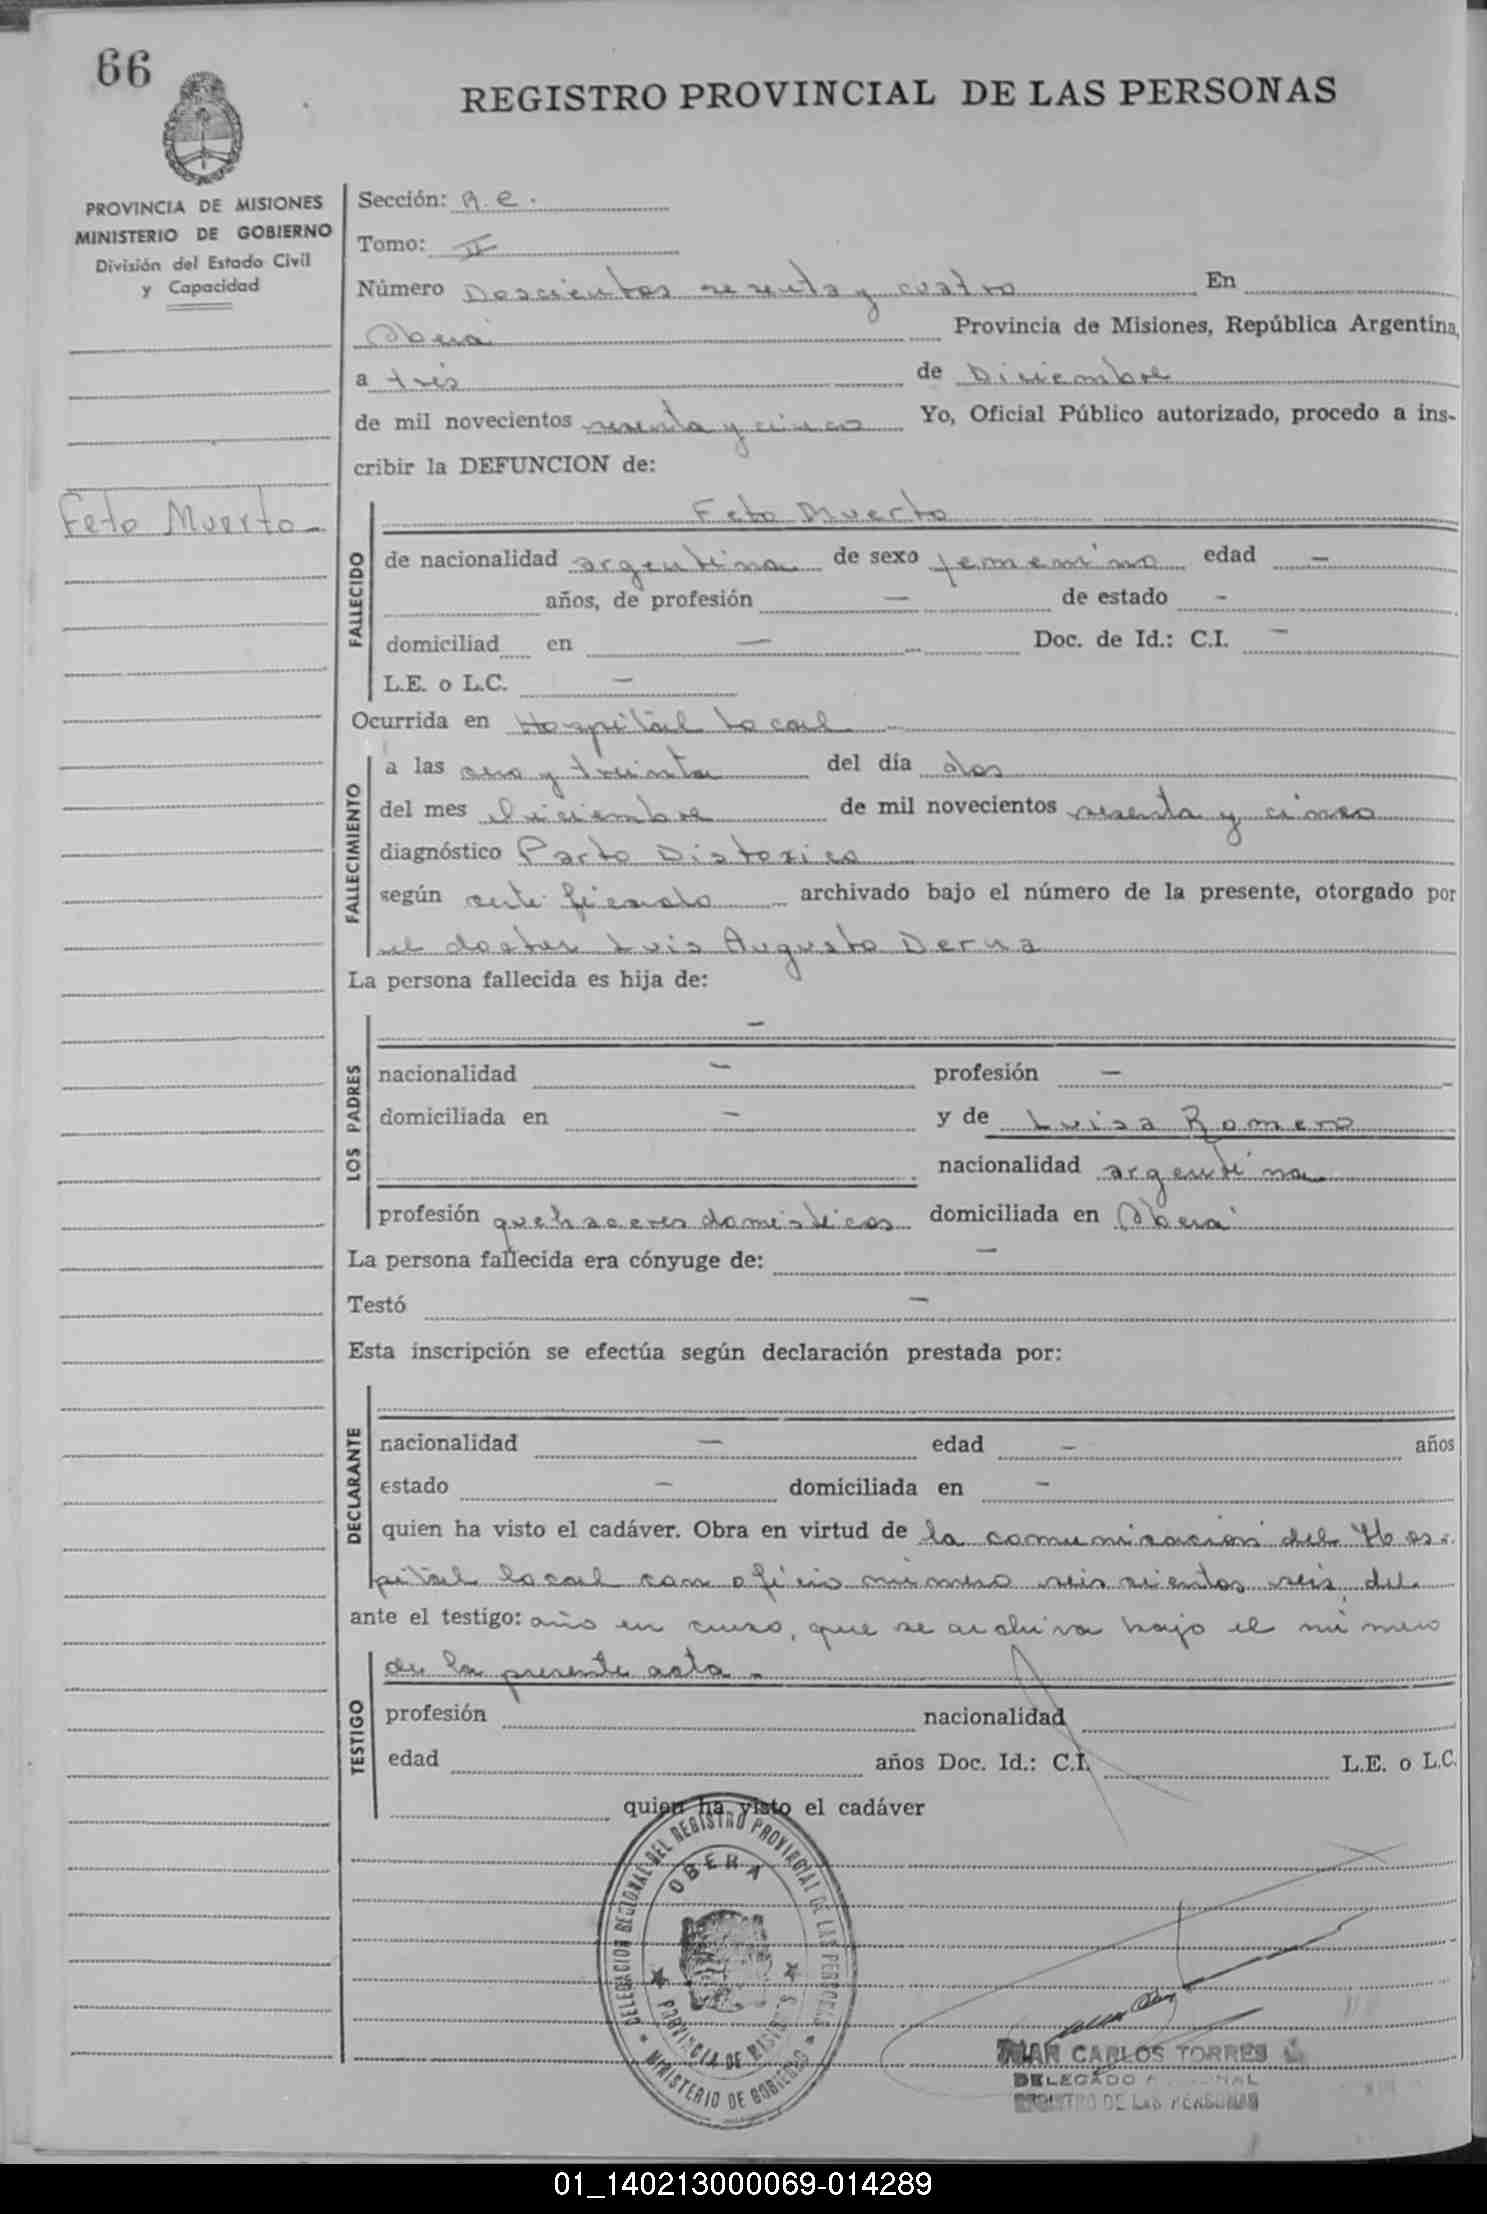 66
REGISTRO PROVINCIAL DE LAS PERSONAS
PROVINCIA DE MISIONES
MINISTERIO DE GOBIERNO
División del Estado Civil
y Capacidad
Feto Muerto
Sección: A. e.
Tomo: II
Número Doscientos sesenta y cuatro En
Oberá Provincia de Misiones, República Argentina,
a tres de Diciembre
de mil novecientos sesenta y cinco Yo, Oficial Público autorizado, procedo a ins-
cribir la DEFUNCION de:
FALLECIDO
Feto Muerto
de nacionalidad argentina de sexo femenino edad —
años, de profesión — de estado -
domiciliad en — Doc. de Id.: C.I. —
L.E. o L.C. —
Ocurrida en Hospital local
FALLECIMIENTO
a las y treinta del día dos
del mes Diciembre de mil novecientos sesenta y cinco
diagnóstico Parto Distoxico
según certificado archivado bajo el número de la presente, otorgado por
el doctor Luis Augusto Derna
La persona fallecida es hija de:
LOS PADRES
—
nacionalidad — profesión —
domiciliada en — y de Luisa Romero
nacionalidad argentina
profesión quehaceres domésticos domiciliada en Oberá
La persona fallecida era cónyuge de: —
Testó —
Esta inscripción se efectúa según declaración prestada por:
DECLARANTE
nacionalidad — edad — años
estado — domiciliada en —
quien ha visto el cadáver. Obra en virtud de la comunicación del Hos-
pital local con oficio número seiscientos seis del
ante el testigo: año en curso, que se archiva bajo el número
de la presente acta -
TESTIGO
profesión nacionalidad
edad años Doc. Id.: C.I. L.E. o L.C.
quien ha visto el cadáver
DELEGACION REGIONAL DEL REGISTRO PROVINCIAL DE LAS PERSONAS
OBERA
PROVINCIA DE MISIONES
MINISTERIO DE GOBIERNO
CARLOS TORRES
DELEGADO
REGISTRO DE LAS PERSONAS
01_140213000069-014289